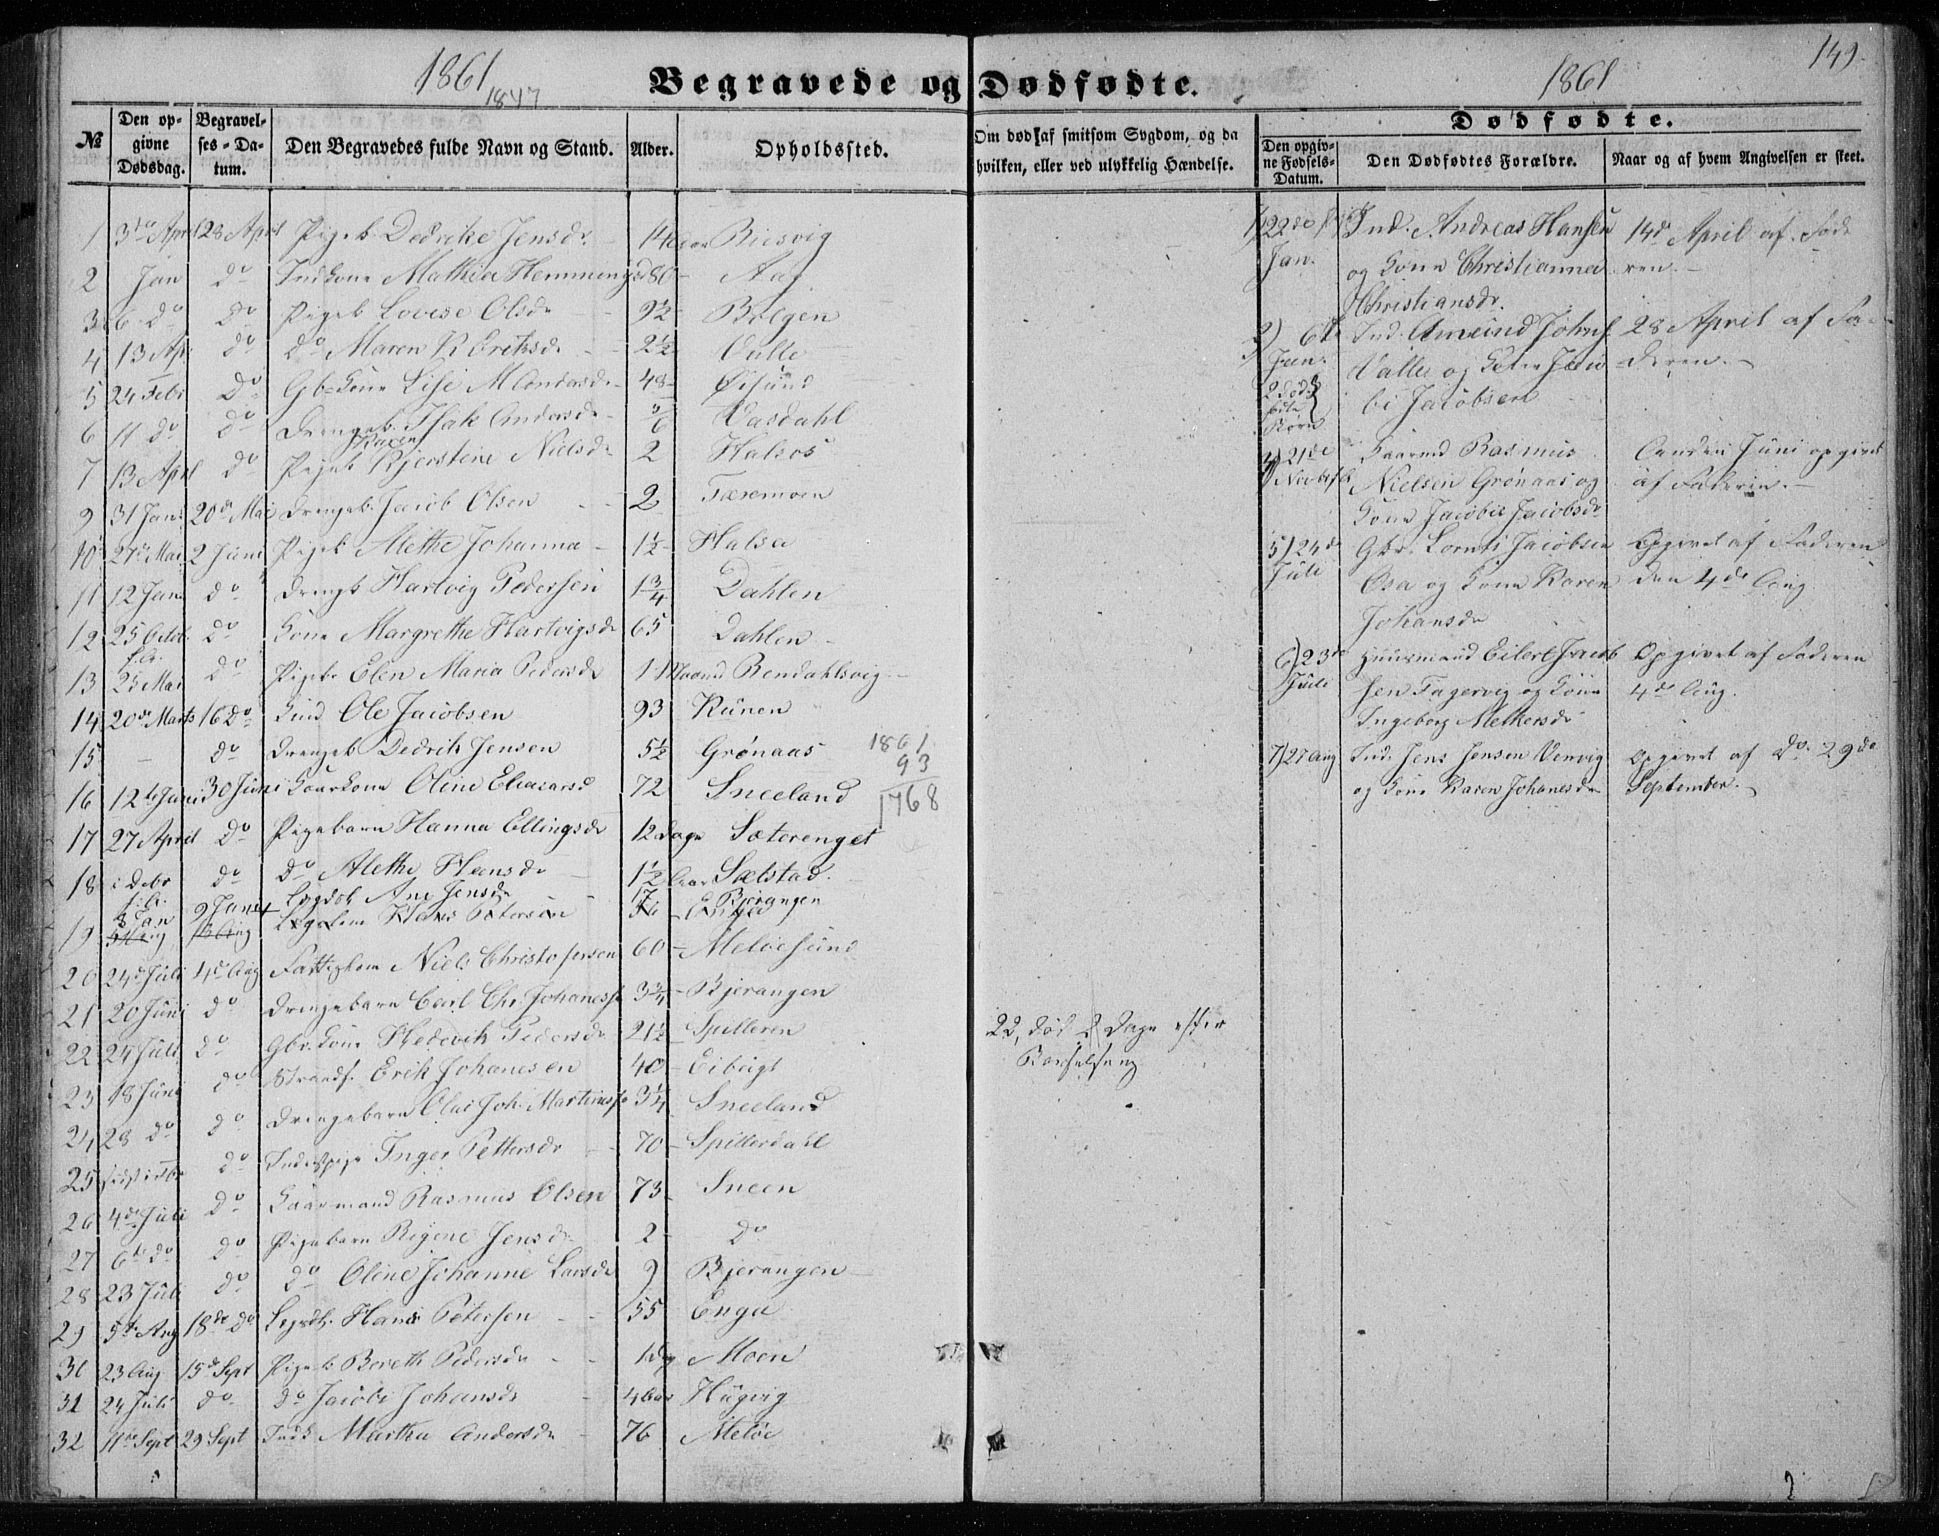 1861
1847
Begravede og Dødfødte.
1861
149.
№
Den opgivne Dødsdag.
Begravelses-Datum.
Den Begravedes fulde Navn og Stand.
Alder.
Opholdssted.
Om død af smitsom Sygdom, og da hvilken, eller ved ulykkelig Hændelse.
Dødfødte.
Den opgivne Fødsels-Datum.
Den Dødfødtes Forældre.
Naar og af hvem Angivelsen er skeet.
1 3die April 28 April Pigeb. Dedrike Jensdr 14 Aar
2 Jan do Indkone Mathea Hemmingsd 80 Aag
3 6 do do Pigeb Lovise Olsdr 9½ Bolgen
4 13 Apr do do Maren K Eriksdr 2½ Valle
5 24 Febr do Gbkone Lise M Andersdr 48 Øisund
6 11 do do Drengeb. Isak Anders Vasdahl
Karen
7 13 April do Pigeb Kjerstine Nielsdr 2 Halsos
9 31 Jan 20de Mai Drengeb. Jacob Olsen 2 Færemoen
10 27de Mai 2 Juni Pigeb Alethe Johanna 1½ Halsa
11 12 Jan do Drengb Hartvig Pedersen 1¾ Dahlen
12 25 Octob. f.A. do Kone Margrethe Hartvigsdr 65 Dahlen
13 25 Mai do Pigeb. Elen Maria Pedersdr 1 Maaned Bendahlsvig
14 20de Marts 16 do Ole Jacobsen 93 Kunen
15 — do Drengeb Dedrik Jensen 5½ Grønaas
1861
93
1768
16 12te Juni 30 Juni Kaarkone Oline Eleasarsd 72 Sneeland
17 27 April do Pigebarn Hanna Ellingsdr 12 Dage Sæterenget
18 i Debr f.A. do do Alethe Hansdr 1½ Aar Selstad
8 Jan 9 Juni Lægdsl. Ane Jensdr 17 Bjerangen
19 Lægslem Hans Petersen Enga
20 24de Juli 4de Aug Fattiglem Niels Christofersen 60 Meløesund
21 20 Juni do Drengebarn Carl Chr. Johaness. 3¾ Bjerangen
22 24 Juli do Gbr.kone Hedevik Pedersdr 21½ Spilleren
22, død 8 Dage efter
Barselseng
23 18 Juni do Strands. Erik Johanesen 40 Eibvigt
24 28 do do Drengebarn Olai Joh. Martiness. 3¼ Sneeland
25 do Inderstpige Inger Pettersdr 70 Spillerdahl
26 4de Juli do Kaarmand Rasmus Olsen 73 Sneen
27 6te do do Pigebarn Regine Jensdr 2 do
28 23 Juli do do Oline Johanne Larsdr 9 Bjerangen
29 5te Aug 18de do Lægdsl. Hans Petersen 55 Enga
30 23 Aug 15de Sept Pigeb Bereth Pedersdr 1 Dg Moen
31 24 Juli do do Jacobe Johansdr 4 Aar Hugvig
32 11te Sept 29 Sept Indk Martha Andersdr 76 Meløe
1) 22de Jan. Ind. Andreas Hansen
og Kone Christianna
Christiansdr.
14de April af Fade
ren.
2) 6te Jan. Ind. Amund Johns.
3) 2 dødfødte Børn
Valla og Kone Jaco
be Jacobsen
28 April af Fa
deren.
4) 21de Novbr f.A. Kaarmd Rasmus
Nielsen Grønaas og
Kone Jacobie Jacobsdr
Anden Juni opgivet
af Faderen.
5) 24de Juli Gbr. Lornts Jacobsen
Osa og Kone Karen
Johansdr
Opgivet af Faderen
den 4de Aug.
6) 23de Juli Huusmand Eilert Jacob
sen Fagervig og Kone
Ingeborg Methersdr
Opgivet af Faderen
4de Aug.
7) 27 Aug Ind. Jens Jensen Venvig
og Kone Karen Johanesdr
Opgivet af do 29de
September.